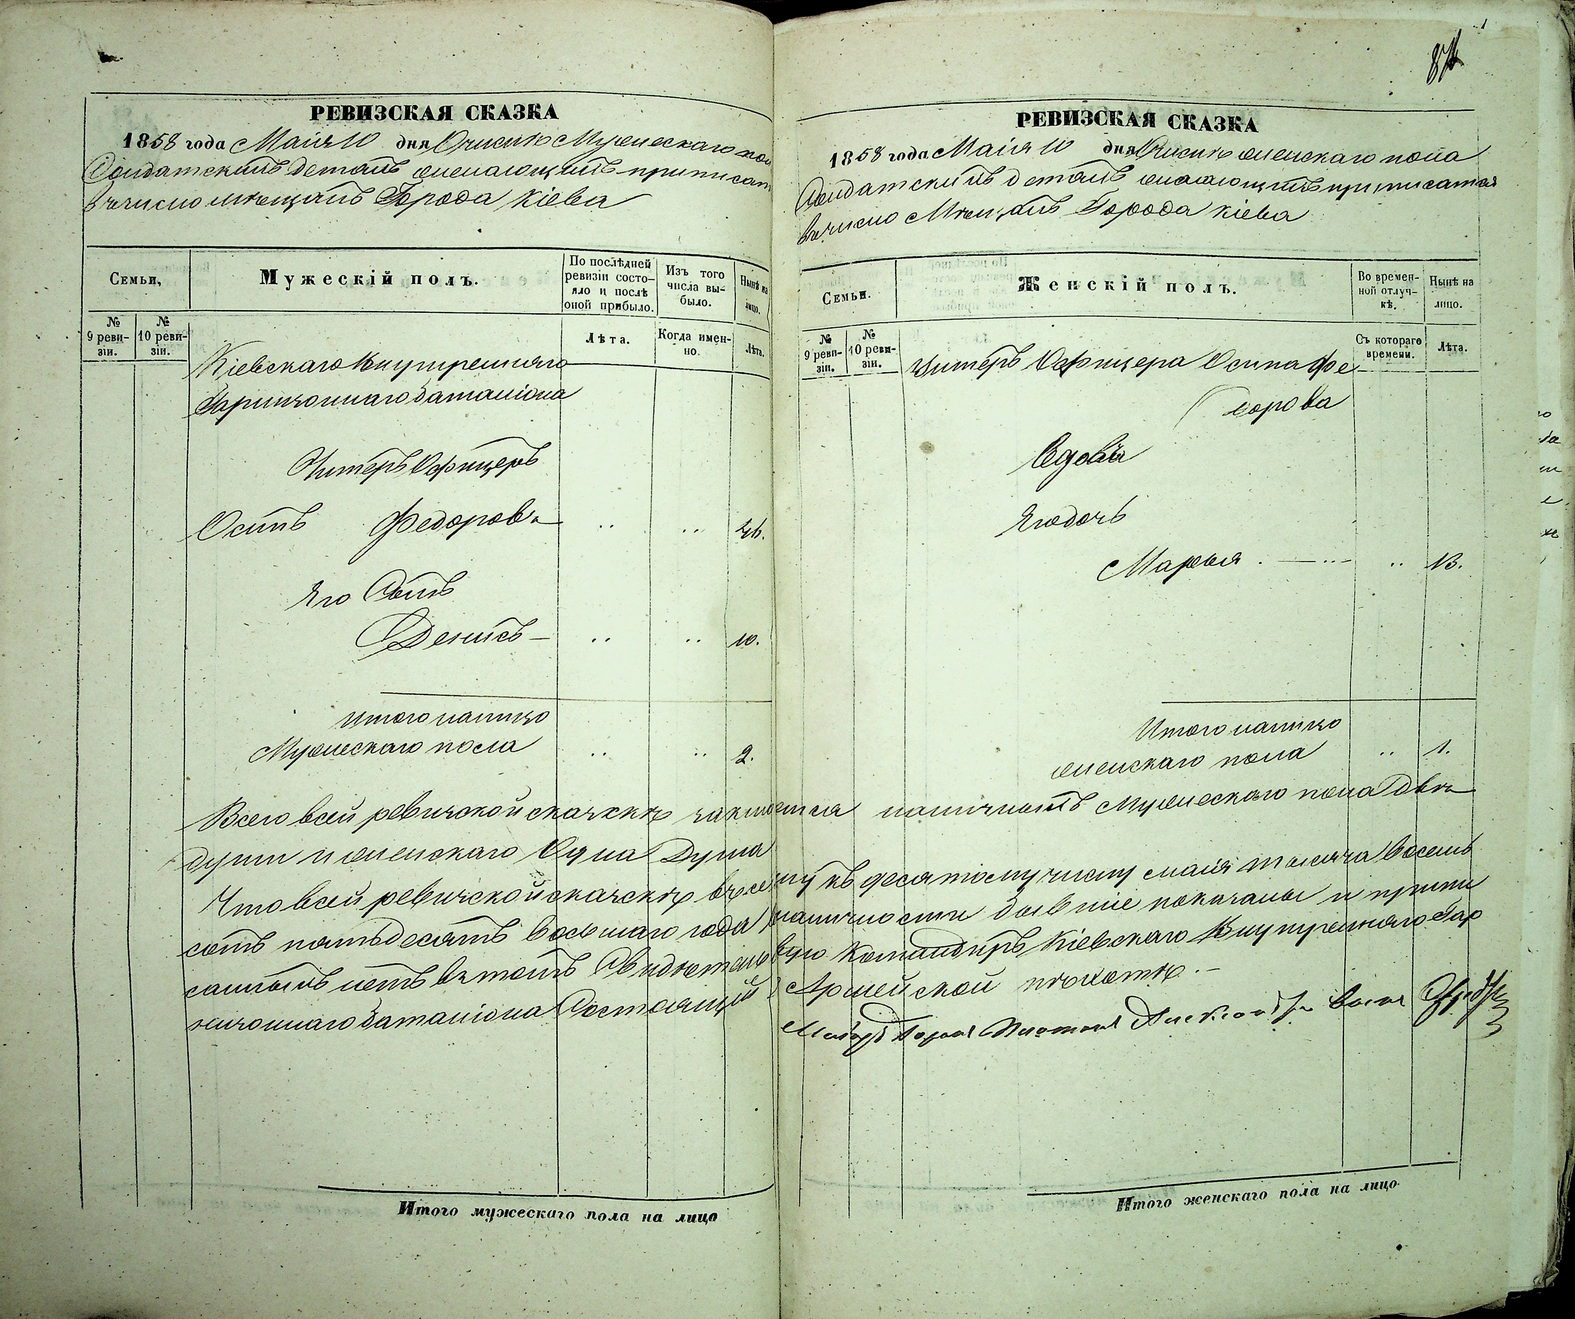 РЕВИЗСКАЯ СКАЗКА
1858 года Маія 10 дня О числѣ Мужескаго пола
Солдатскимъ детямъ желающимъ приписатся
в число мѣщанъ Города Кіева
Семьи,
Мужескій полъ.
По послѣдней ревизіи состояло и послѣ оной прибыло.
Изъ того числа выбыло.
Нынѣ на лицо.
№ 9 ревизіи.
№ 10 ревизіи.
Лѣта.
Когда именно.
Лѣта.
Кіевскаго Внутренняго
Гарнизоннаго баталіона
Унтеръ Офицеръ
Осипъ Федоровъ
Его Сынъ
Денисъ — 10.
Итого налицо
Мужескаго пола 2.
84
РЕВИЗСКАЯ СКАЗКА
1858 года Маія 10 дня О числѣ женскаго пола
Солдатскимъ детямъ желающимъ приписатся
в число Мѣщанъ Города Кіева
Семьи.
Женскій полъ.
Во временной отлучкѣ.
Нынѣ на лицо.
№ 9 ревизіи.
№ 10 ревизіи.
Съ котораго времени.
Лѣта.
Унтеръ Офицера Осипа Фе
дорова
Вдовъ
Его дочь
Марья 13.
Итого налицо
женскаго пола 1.
Всего всей ревизской сказкѣ наличныхъ Мужескаго пола двѣ
души и женскаго Одна Душа
Что всей ревизской сказкѣ въсему къ десятому числу маія тысяча восемь
сотъ пятьдесятъ восьмаго года наличности бывшіе показаны и припи
санныхъ нетъ въ томъ Свидѣтельствую Командиръ Кіевскаго Внутренняго Гар
низоннаго баталіона Состоящій Армейской пѣхотѣ. —
Маіоръ
Итого мужескаго пола на лицо
Итого женскаго пола на лицо